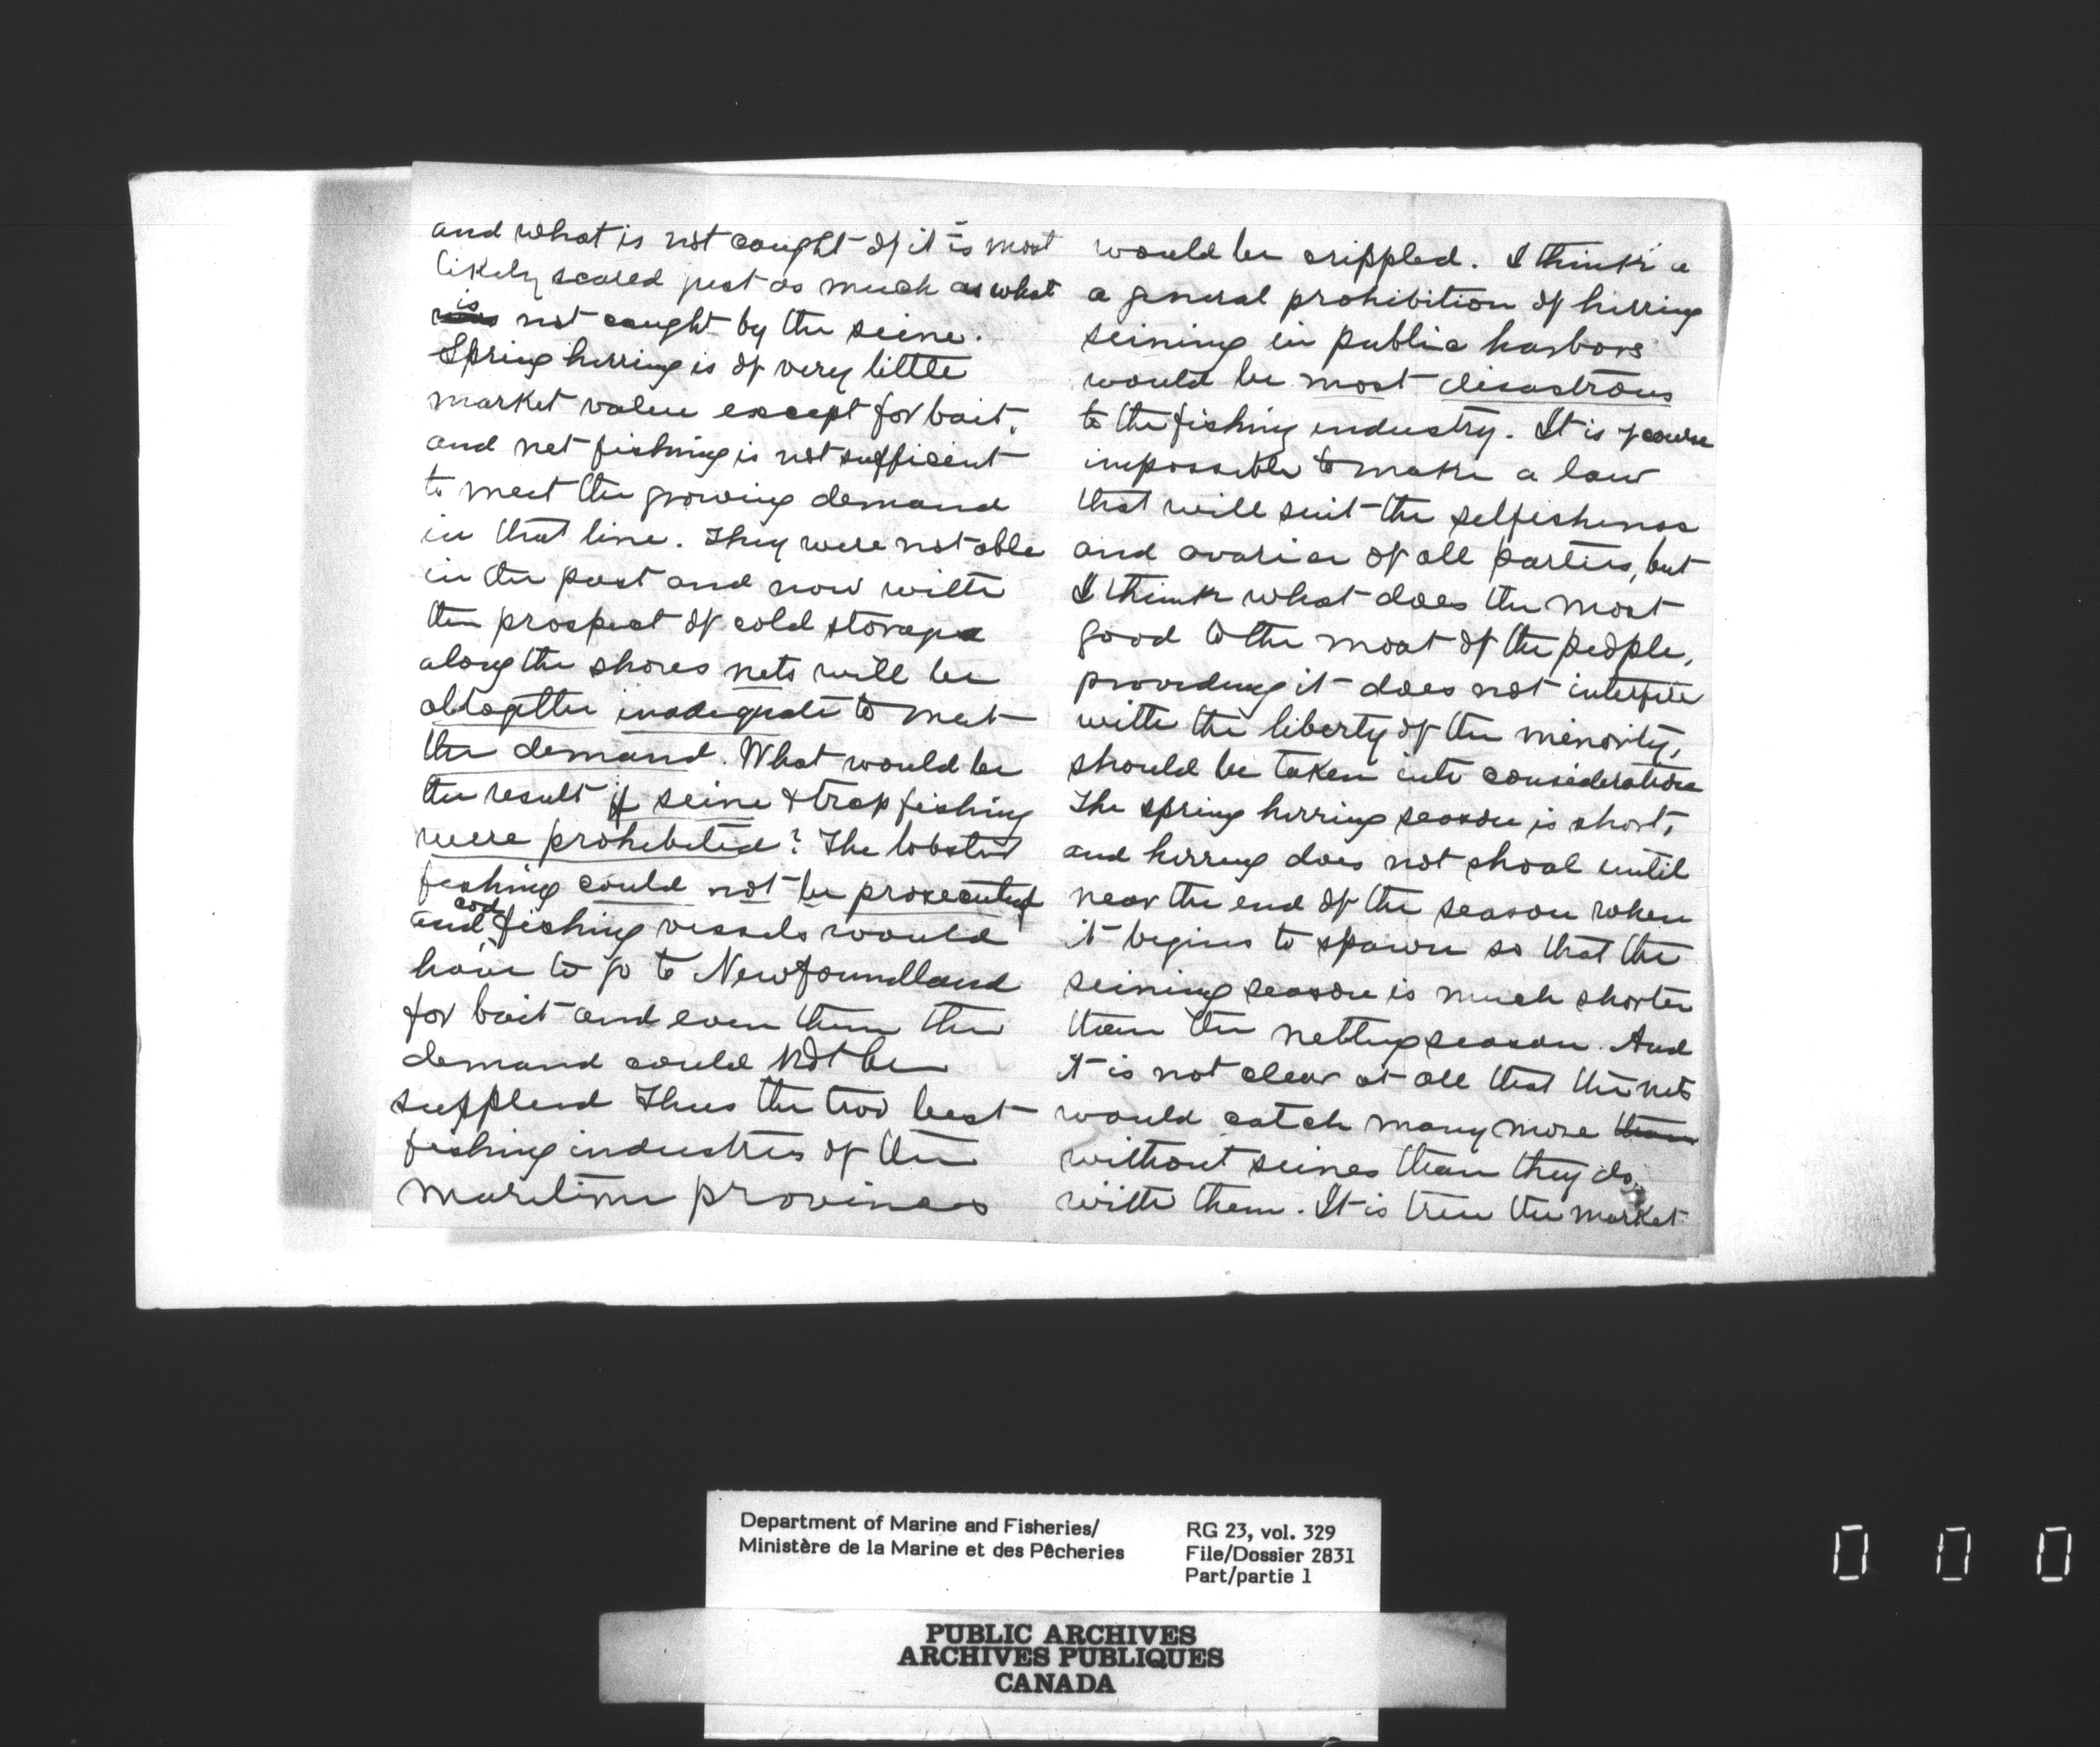 and what is not caught of it is most
likely scared just as much as what
is not caught by the seine.
Spring herring is of very little
market value except for bait,
and net fishing is not sufficient
to meet the growing demand
in that line. They were not able
in the past and now with
the prospect of cold storage
along the shores nets will be
altogether inadequate to meet
the demand. What would be
the result if seine & trap fishing
were prohibited? The lobster
fishing could not be prosecuted
and cod fishing vessels would
have to go to Newfoundland
for bait and even then the
demand could not be
supplied Thus the two best
fishing industries of the
maritime provinces
would be crippled. I think a
a general prohibition of herring
seining in public harbors
would be most disastrous
to the fishing industry. It is of course
impossible to make a law
that will suit the selfishness
and avarice of all parties, but
I think what does the most
good to the most of the people,
providing it does not interfere
with the liberty of the minority,
should be taken into consideration
The spring herring season is short,
and herring does not shoal until
near the end of the season when
it begins to spawn so that the
seining season is much shorter
than the netting season. And
it is not clear at all that the nets
would catch many more than
without seines than they do
with them. It is true the market
Department of Marine and Fisheries/
Ministère de la Marine et des Pêcheries
RG 23, vol. 329
File/Dossier 2831
Part/partie 1
PUBLIC ARCHIVES
ARCHIVES PUBLIQUES
CANADA
0 0 0